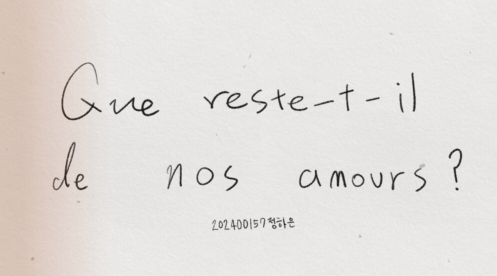 Que reste-t-il
de nos amours?
202400157정하은